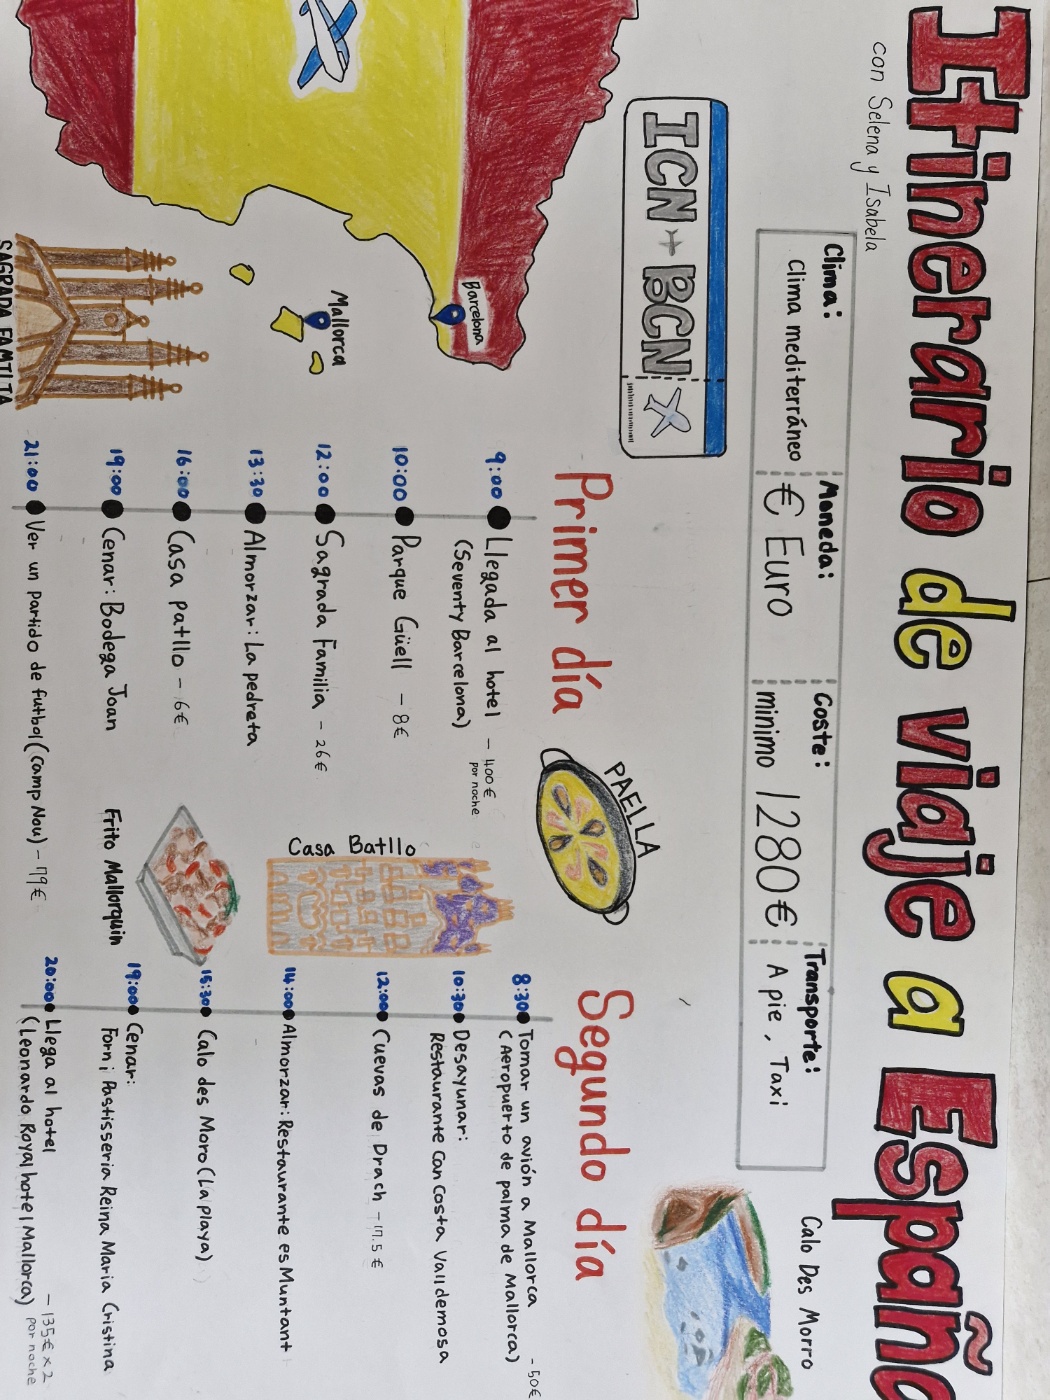 Itinerario de viaje a España
con Selena y Isabela
Clima:
Clima mediterráneo
Moneda:
€ Euro
Coste:
minimo 1280€
Transporte:
A pie, Taxi
ICN BCN
Barcelona
Mallorca
SAGRADA FAMILIA
Primer día
9:00 Llegada al hotel - 400€
por noche
(Seventy Barcelona)
10:00 Parque Güell - 8€
12:00 Sagrada Familia - 26€
13:30 Almorzar: La pedreta
16:00 Casa patllo - 6€
19:00 Cenar: Bodega Joan
21:00 Ver un partido de futbol (Camp Nou) - 79€
PAELLA
Casa Batllo
Frito Mallorquin
Calo Des Morro
Segundo día
8:30 Tomar un avión a Mallorca - 50€
(Aeropuerto de palma de Mallorca)
10:30 Desayunar:
Restaurante Can Costa Valldemosa
12:00 Cuevas de Drach - 17.5€
14:00 Almorzar: Restaurante es Muntant
15:30 Calo des Moro (La playa)
19:00 Cenar:
Forn i Pastisseria Reina Maria Cristina
20:00 Llega al hotel - 135€ x 2
(Leonardo Royal hotel Mallorca) por noche